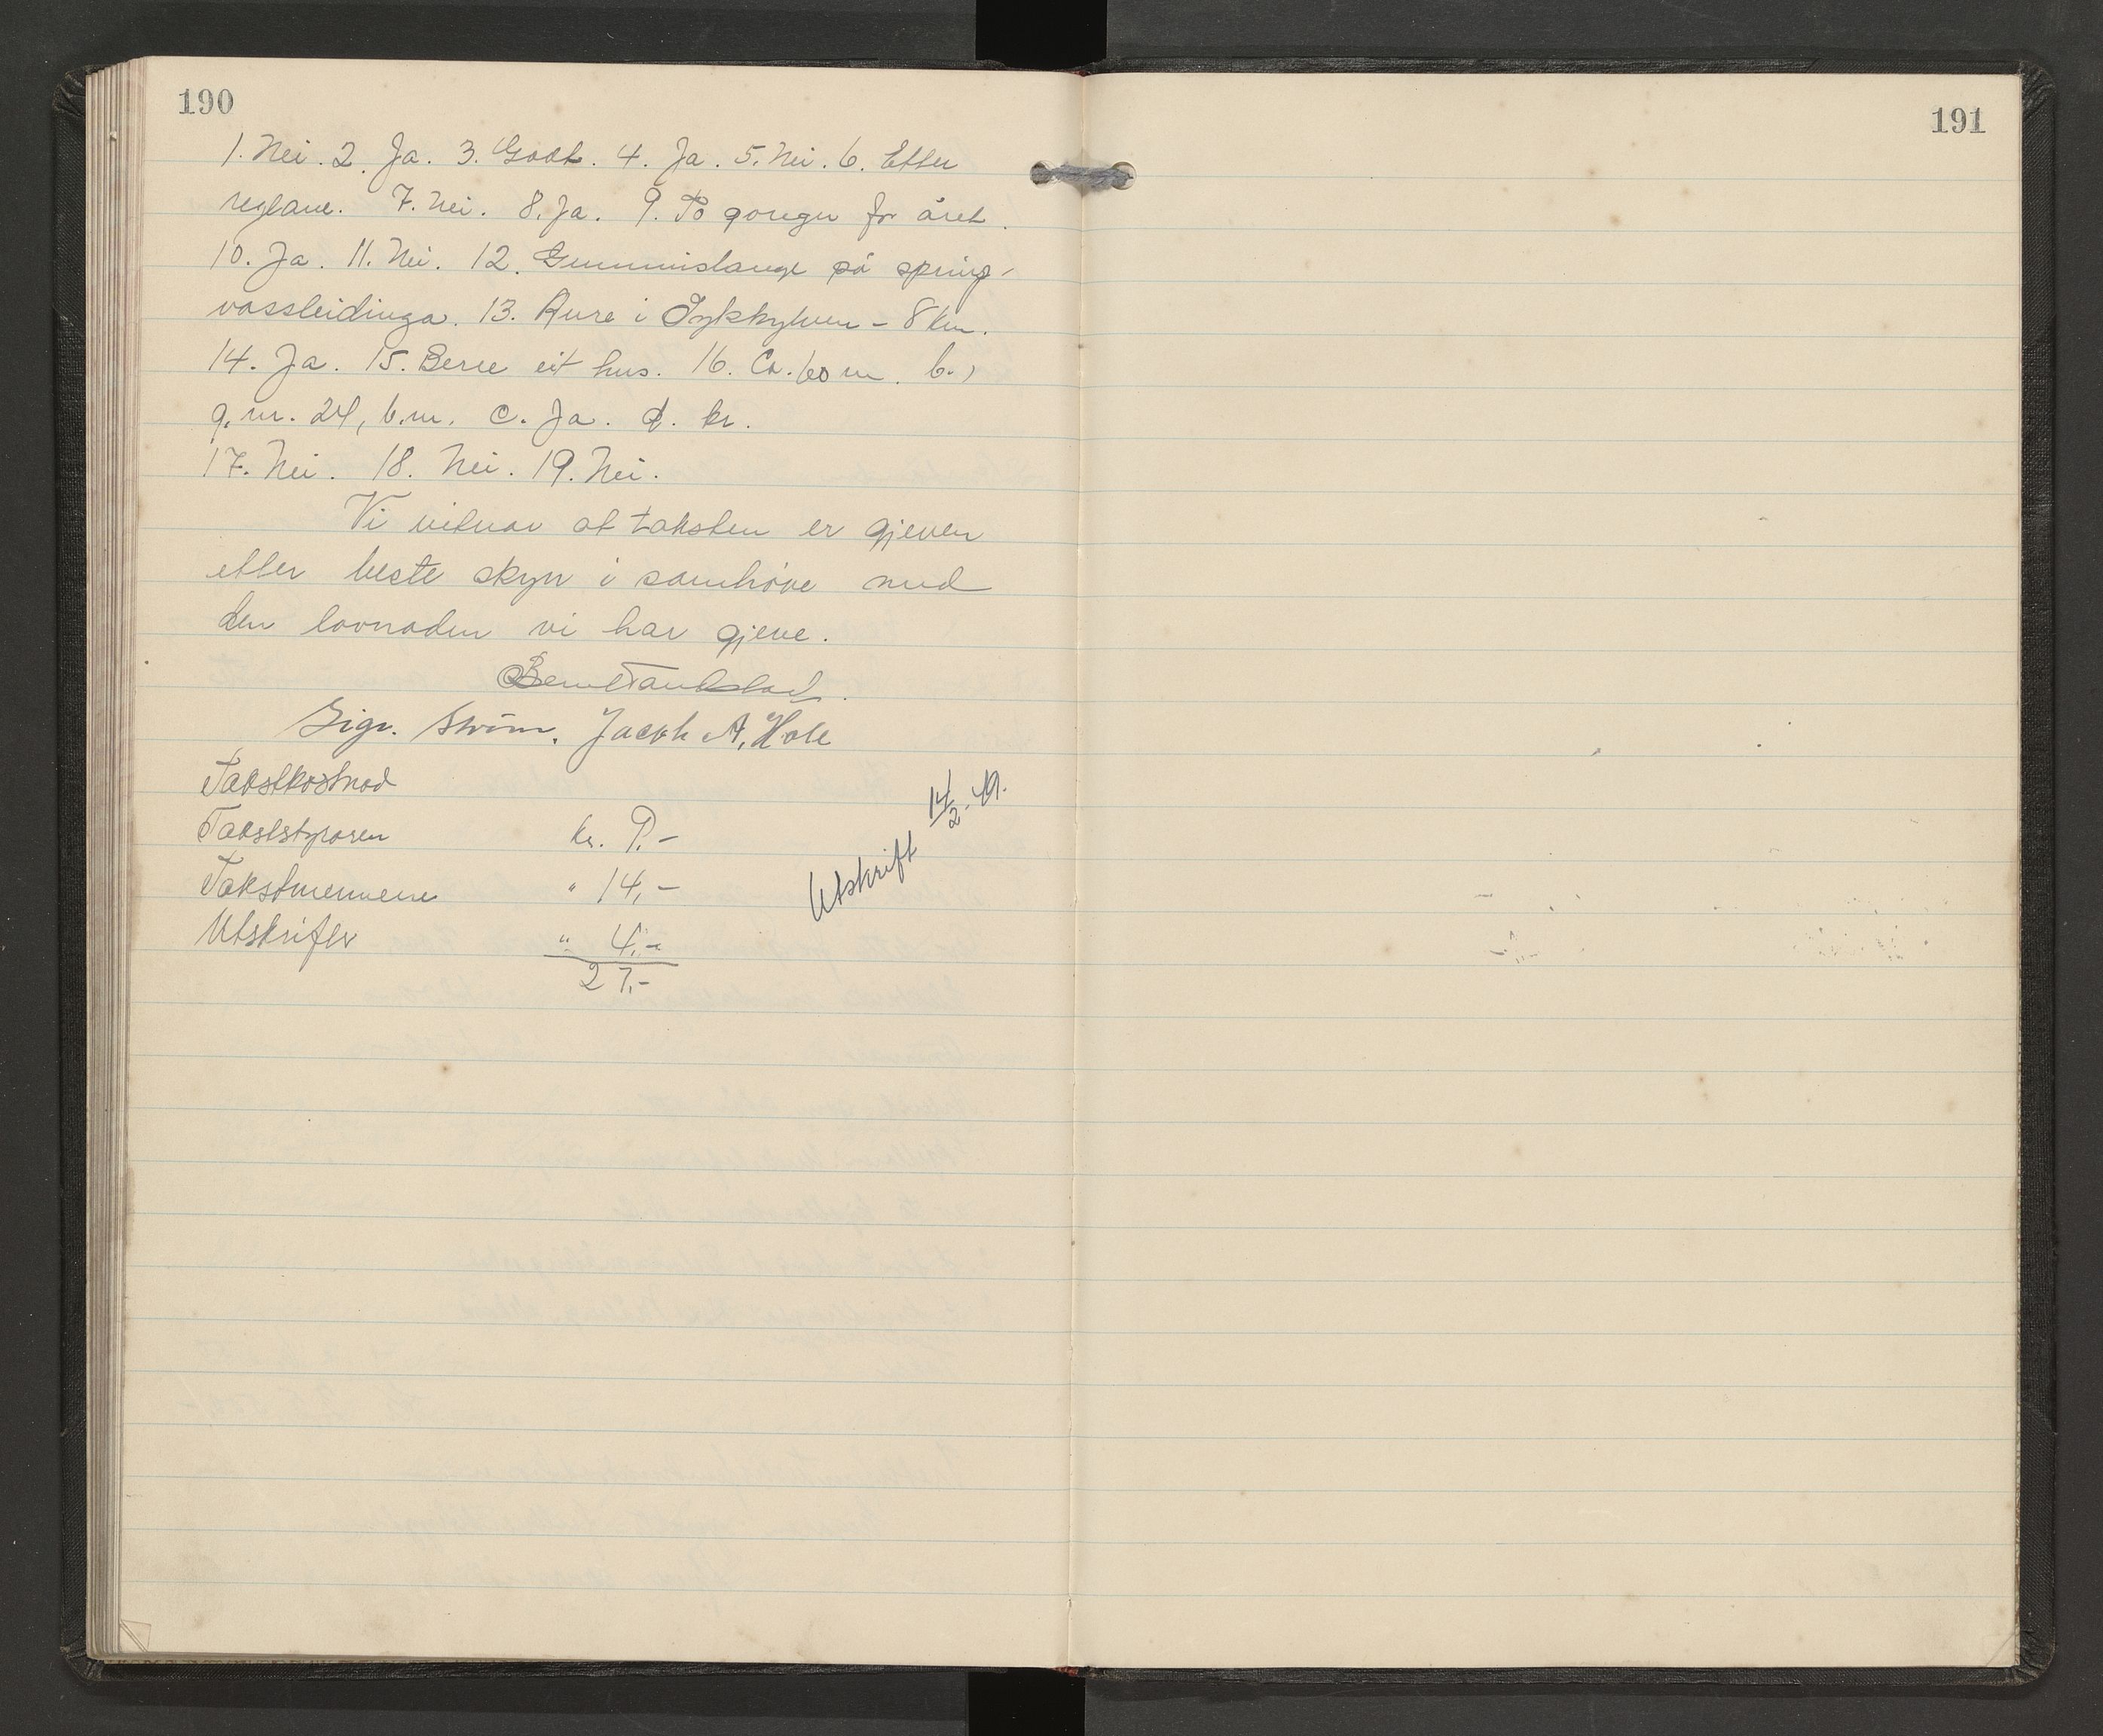 190
1. Nei. 2. Ja. 3. Godt. 4. Ja. 5. Nei. 6. Etter
reglane. 7. Nei. 8. Ja. 9. To gonger for året.
10. Ja. 11. Nei. 12. Gummislange på spring-
vassleidinga. 13. Aure i Sykkylven - 8 km.
14. Ja. 15. Berre eit hus. 16. Ca. 60 m. b.)
g.nr. 24, b.nr. c. Ja. d. kr.
17. Nei. 18. Nei. 19. Nei.
Vi vitnar at taksten er gjeven
etter beste skyn i samhøve med
den lovnaden vi har gjeve.
Bernt Tandstad.
Sigv. Strøm. Jacob A. Hole
Takstkostnad
Takststyraren kr. 9.-
Takstmennene " 14,-
Utskrifter " 4,-
27,-
Utskrift 14/2.49.
191